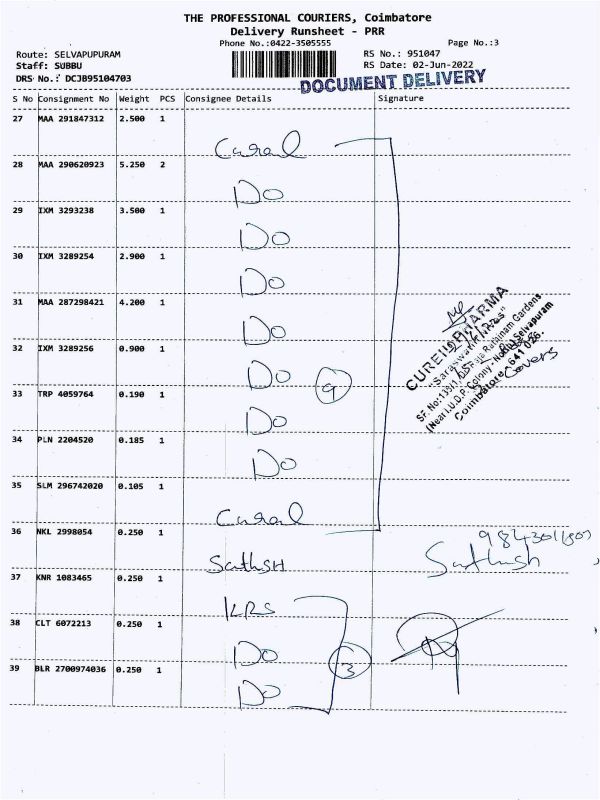 THE PROFESSIONAL COURIERS, Coimbatore
Delivery Runsheet - PRR
Phone No.:0422-3505555
Page No.:3
Route: SELVAPUPURAM
RS No.: 951047
Staff: SUBBU
RS Date: 02-Jun-2022
DRS No.: DCJB95104703
DOCUMENT DELIVERY
S No Consignment No Weight PCS Consignee Details Signature
27 MAA 291847312 2.500 1
28 MAA 290620923 5.250 2 Do
29 IXM 3293238 3.500 1 Do
30 IXM 3289254 2.900 1 Do
31 MAA 287298421 4.200 1 Do
32 IXM 3289256 0.900 1 Do 9
33 TRP 4059764 0.190 1 Do
34 PLN 2204520 0.185 1 Do
35 SLM 296742020 0.105 1
36 NKL 2998054 0.250 1 SathSH Sathish
37 KNR 1083465 0.250 1 KRS
38 CLT 6072213 0.250 1 Do 3
39 BLR 2700974036 0.250 1 Do
PHARMA
Coimbatore - 641 026.
Covers